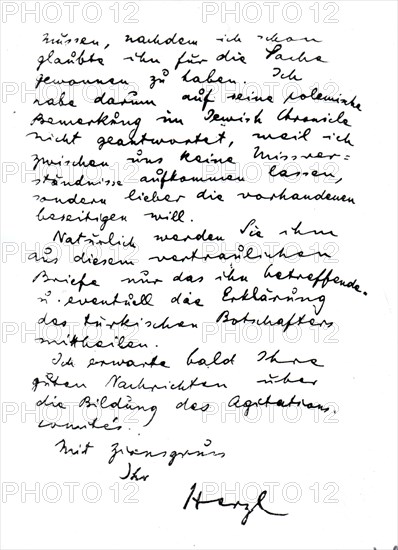 müssen, nachdem ich schon
glaubte ihn für die Sache
gewonnen zu haben. Ich
habe darum auf seine polemische
Bemerkung im Jewish Chronicle
nicht geantwortet, weil ich
zwischen uns keine Missver=
ständnisse aufkommen lassen,
sondern lieber die vorhandenen
beseitigen will.
Natürlich werden Sie ihm
aus diesem vertraulichen
Briefe nur das ihn betreffende
u. eventuell die Erklärung
des türkischen Botschafters
mittheilen.
Ich erwarte bald Ihre
guten Nachrichten über
die Bildung des Agitations-
comités.
Mit Zionsgruss
Ihr
Herzl
PHOTO 12